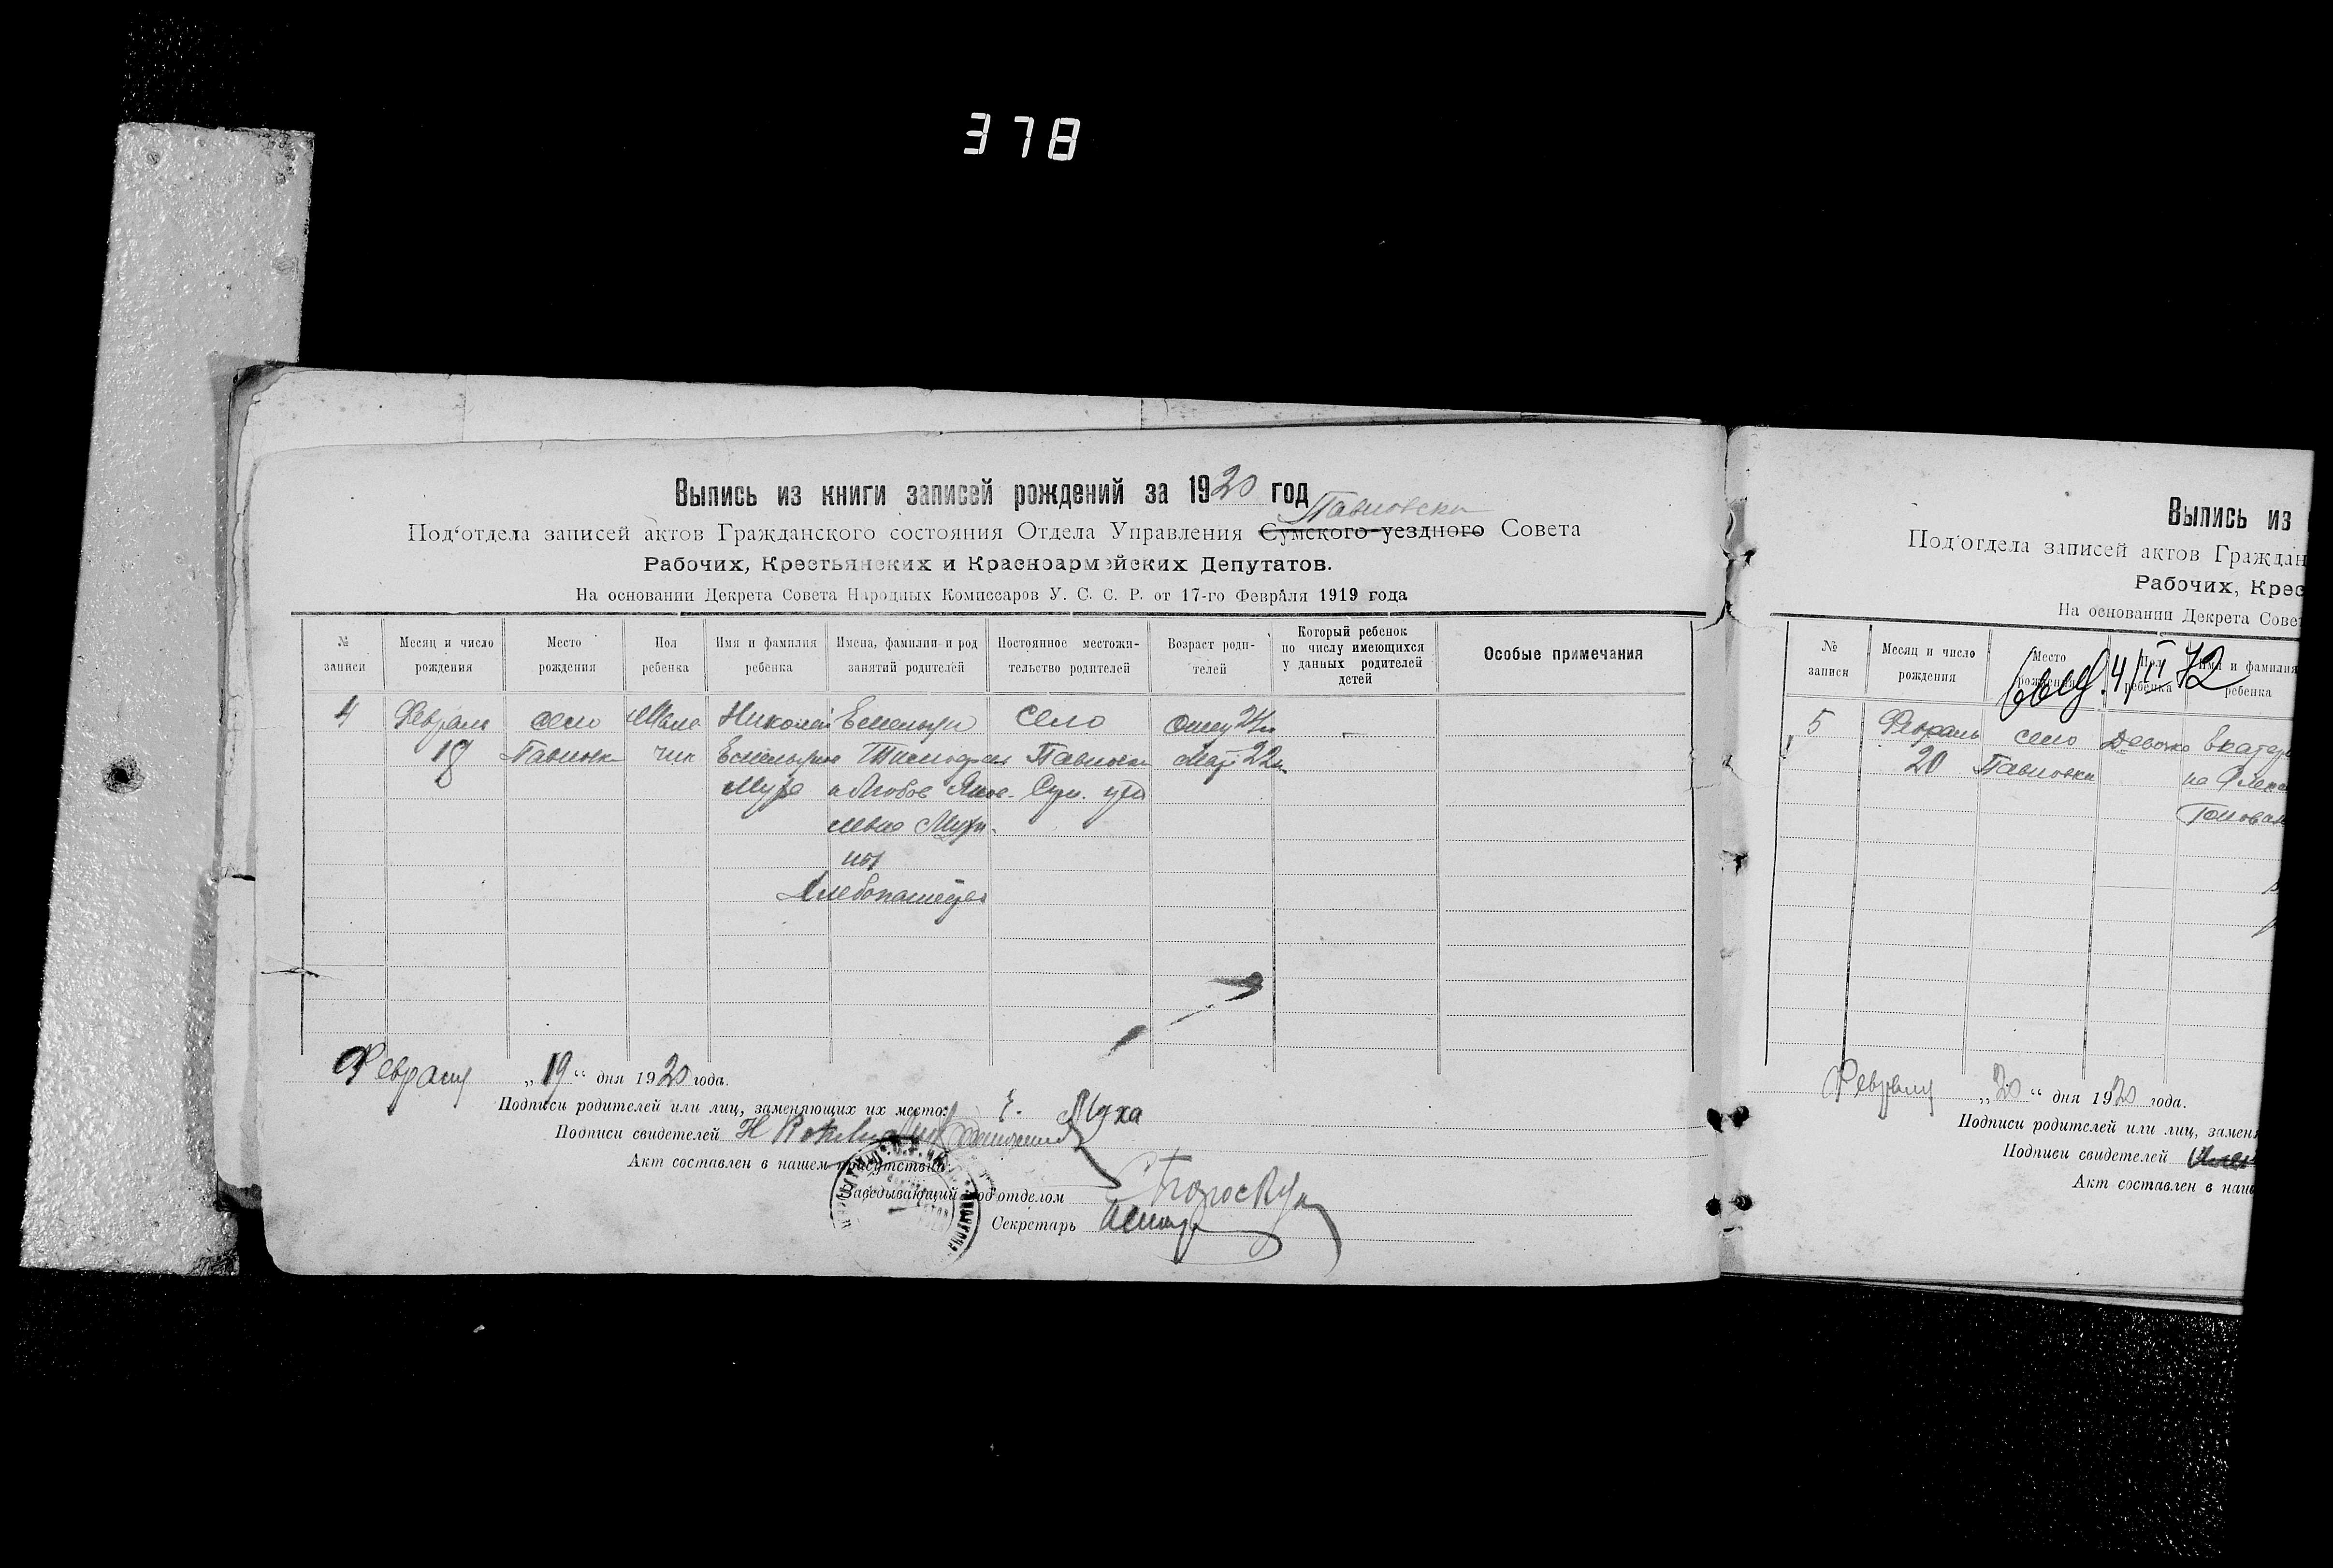 378
Выпись из книги записей рождений за 1920 год
Павловски
Под'отдела записей актов Гражданского состояния Отдела Управления Сумского уездного Совета
Рабочих, Крестьянских и Красноармейских Депутатов.
На основании Декрета Совета Народных Комиссаров У. С. С. Р. от 17-го Февраля 1919 года
№ записи
Месяц и число рождения
Место рождения
Пол ребенка
Имя и фамилия ребенка
Имена, фамилии и род занятий родителей
Постоянное местожительство родителей
Возраст родителей
Который ребенок по числу имеющихся у данных родителей детей
Особые примечания
4
Февраля
18
село
Павловк
Маль
чик
Николай
Муха
и Любовь Яков-
левна
Хлебопашцы
Село
Павловка
Сум. уез
Отцу
Мат. 22
Февраля „19“ дня 1920 года.
Подписи родителей или лиц, заменяющих их место: Е. Муха
Подписи свидетелей Н
Акт составлен в нашем присутствии:
Заведывающий под'отделом
Секретарь
Выпись из
Под'отдела записей актов Граждан
Рабочих, Крес
На основании Декрета Совет
№ записи
Месяц и число рождения
Место рождения
Пол ребенка
Имя и фамилия ребенка
выд. 4/VI 72
5
Февраль
20
село
Павловка
Девочка
Екатери
на
Голован
Февраля „20“ дня 1920 года.
Подписи родителей или лиц, замен
Подписи свидетелей
Акт составлен в наш